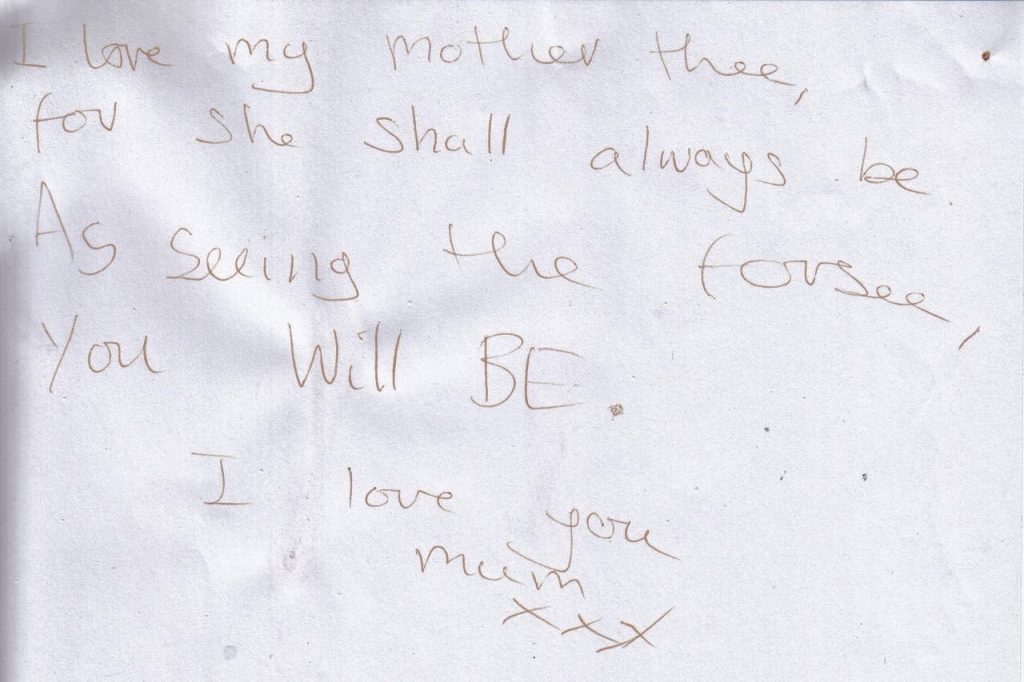 I love my mother thee,
for she shall always be
As seeing the forsee,
You Will BE.
I love you
mum
xxx